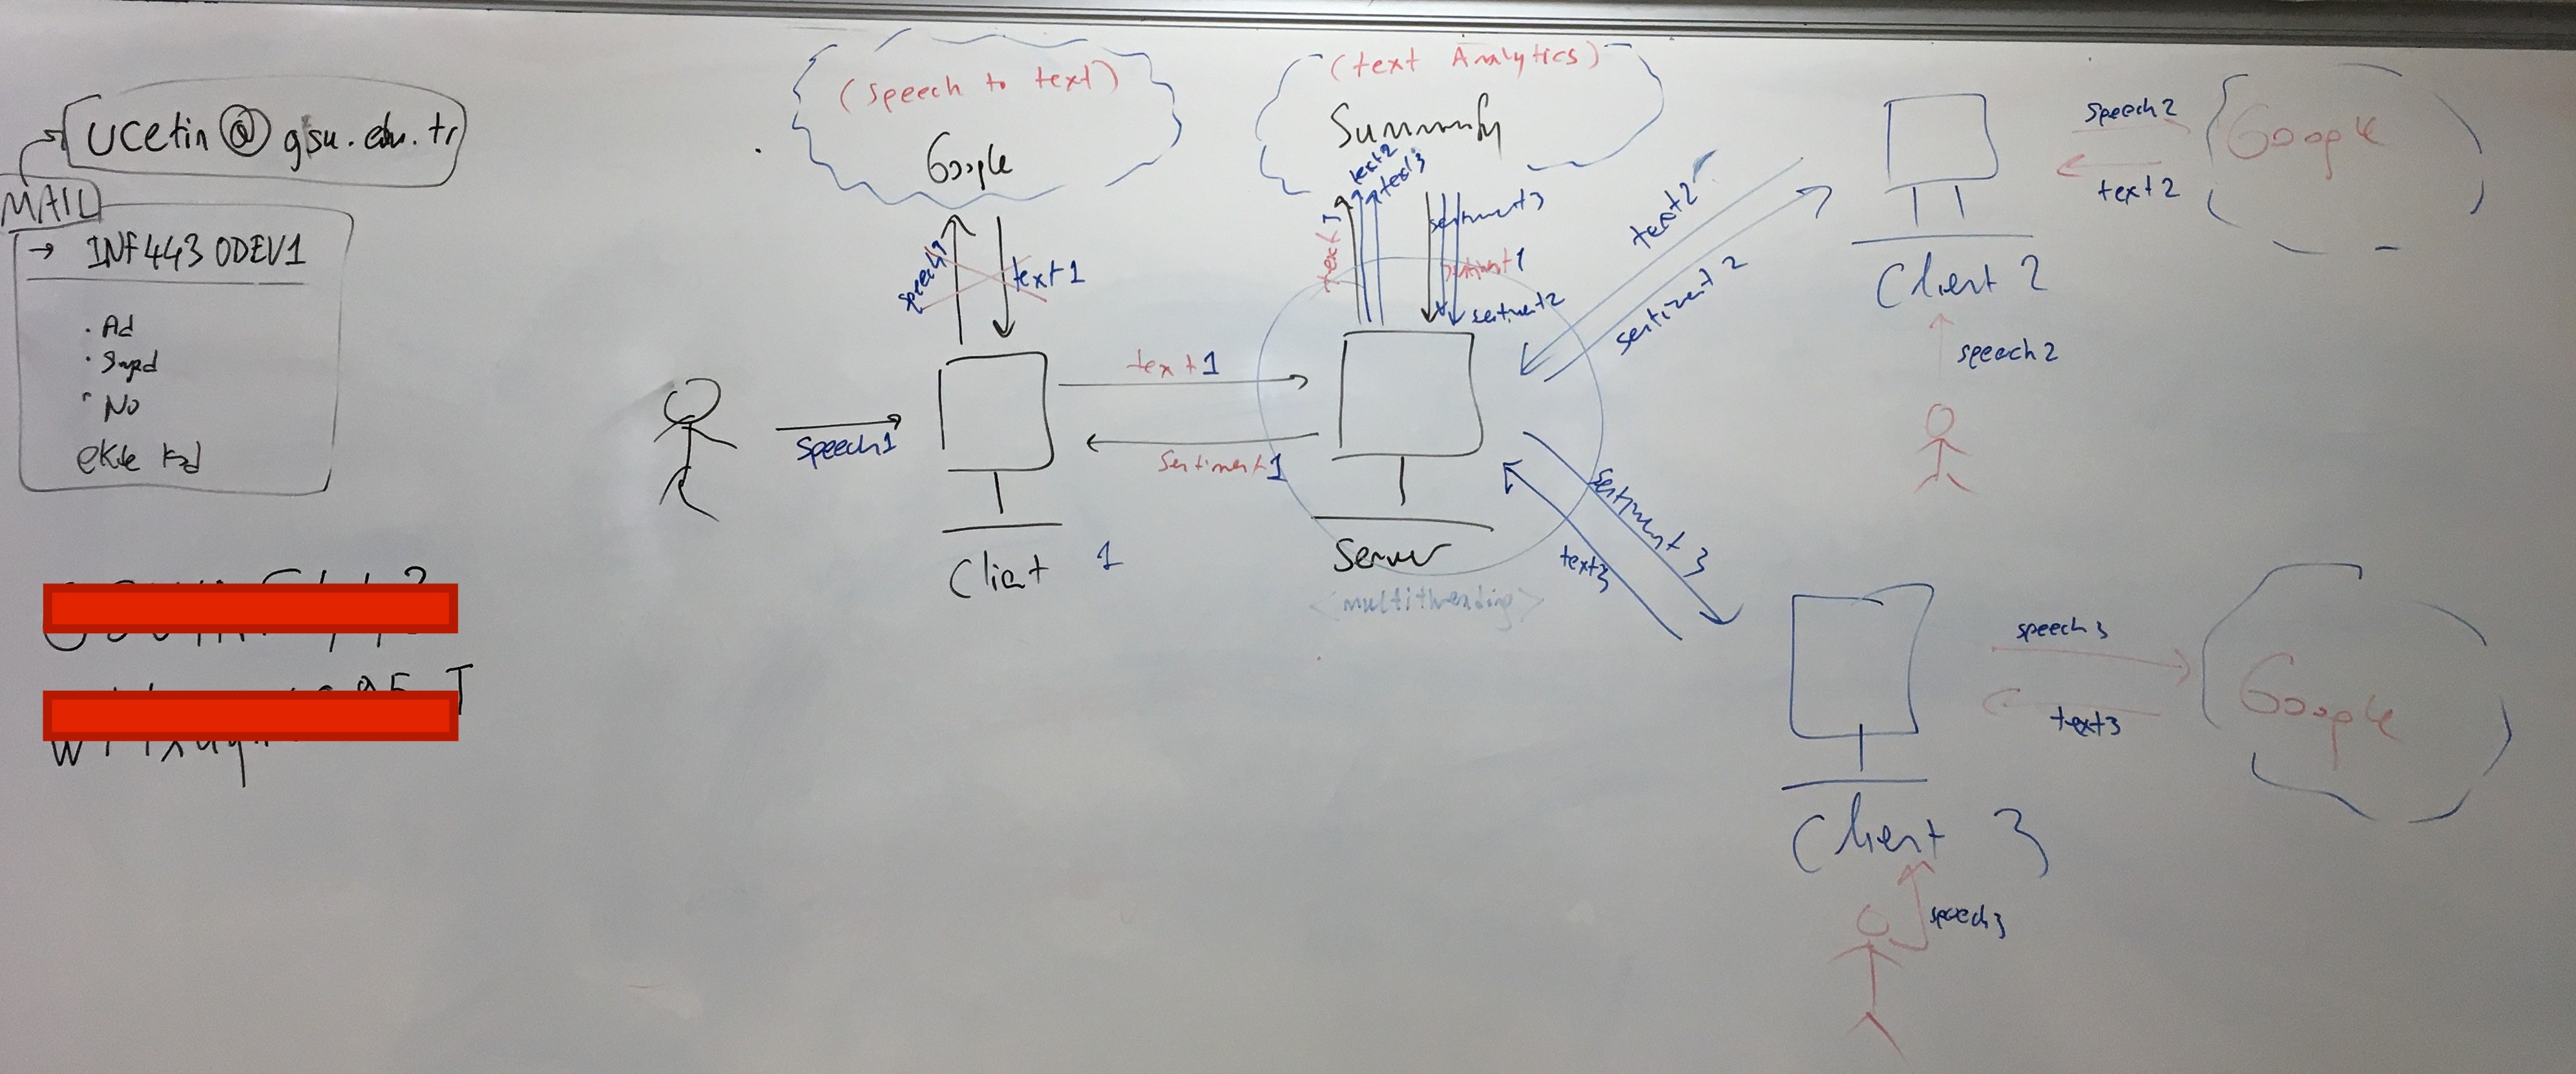 ucetin@gsu.edu.tr
MAIL
→ INF443 ODEV1
· Ad
· Soyad
· No
ekle
(speech to text)
Google
speech1
text1
speech1
text1
sentiment1
Client 1
(text Analytics)
Summify
text1
text2
text3
sentiment3
sentiment1
sentiment2
Server
<multithreading>
text2
sentiment 2
Client 2
speech2
text2
Google
speech2
sentiment 3
text3
Client 3
speech3
text3
Google
speech3